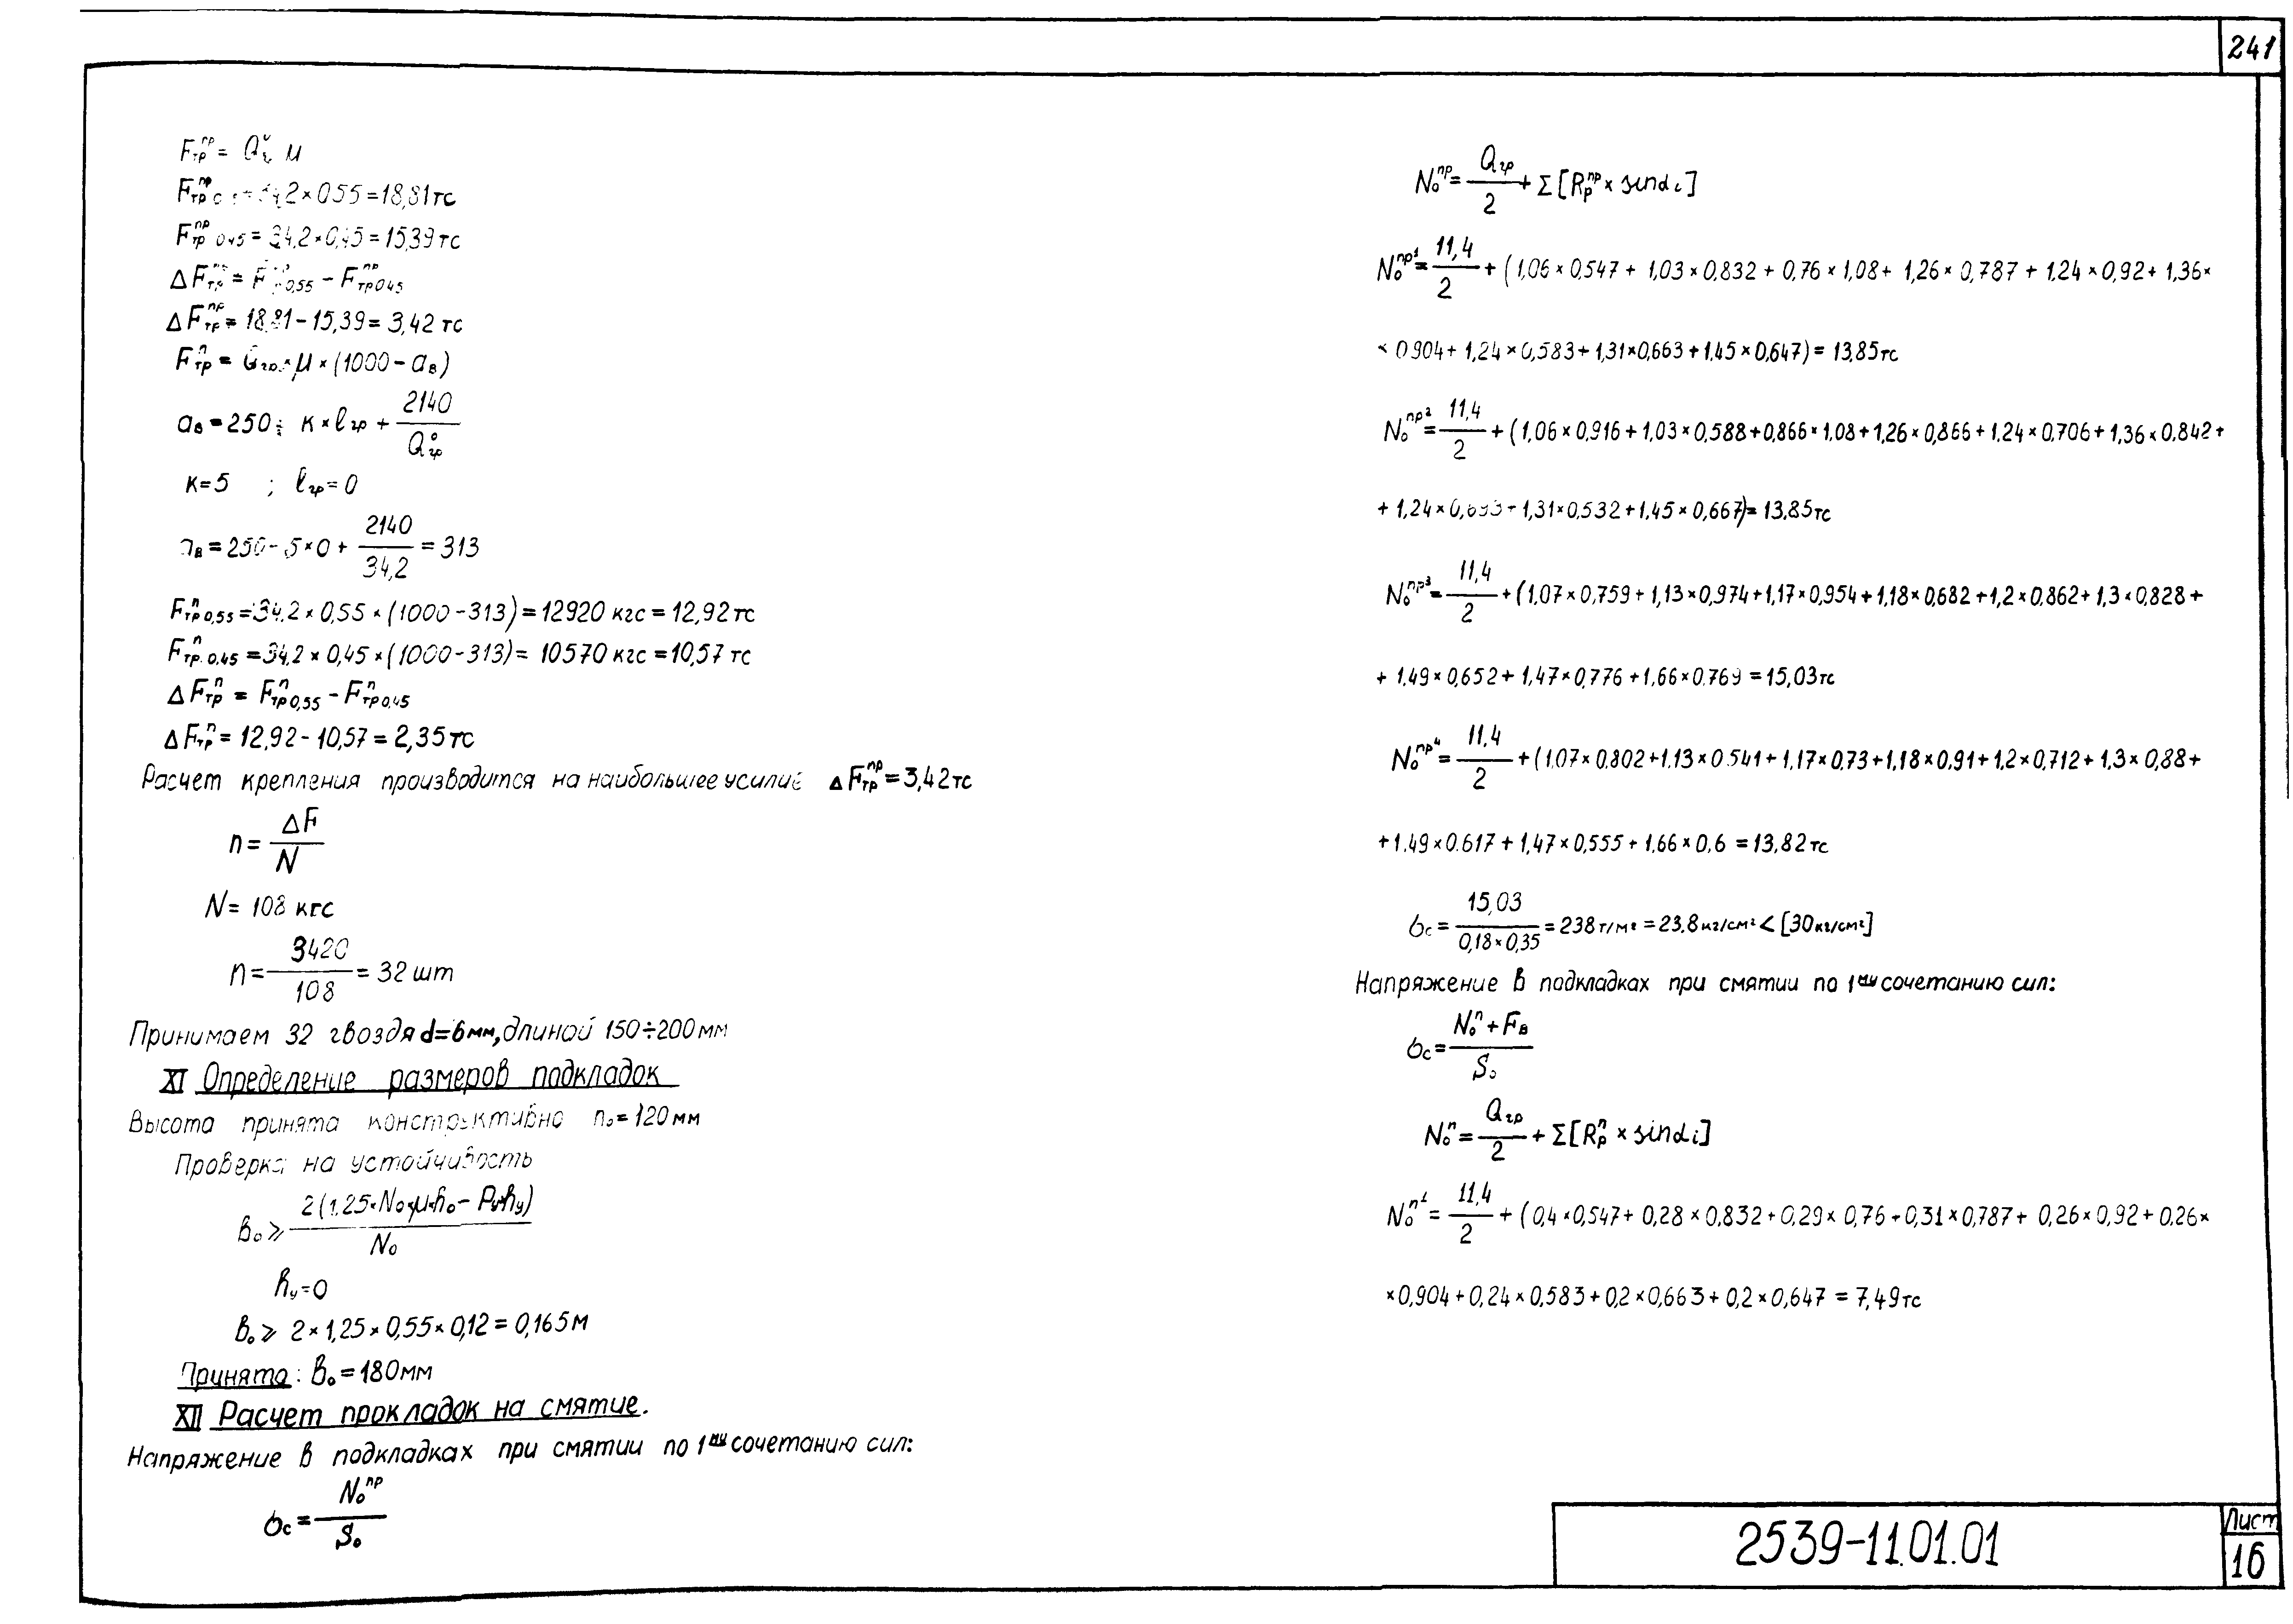 241
Fтр^пр = Q μ
Fтр^пр = 34,2 × 0,55 = 18,81 тс
Fтр^пр 0,45 = 34,2 × 0,45 = 15,39 тс
Δ Fтр^пр = F 0,55 − Fтр 0,45^пр
Δ Fтр^пр = 18,81 − 15,39 = 3,42 тс
Fтр^п = Qгр × μ × (1000 − aв)
aв = 250 ÷ к × ℓгр + 2140 / Qгр^о
к = 5 ; ℓгр = 0
aв = 250 − 5 × 0 + 2140 / 34,2 = 313
Fтр^п 0,55 = 34,2 × 0,55 × (1000 − 313) = 12920 кгс = 12,92 тс
Fтр^п 0,45 = 34,2 × 0,45 × (1000 − 313) = 10570 кгс = 10,57 тс
Δ Fтр^п = Fтр^п 0,55 − Fтр^п 0,45
Δ Fтр^п = 12,92 − 10,57 = 2,35 тс
Расчет крепления производится на наибольшее усилие Δ Fтр^пр = 3,42 тс
n = ΔF / N
N = 108 кгс
n = 3420 / 108 = 32 шт
Принимаем 32 гвоздя d=6мм, длиной 150÷200 мм
XI Определение размеров подкладок
Высота принята конструктивно hо = 120 мм
Проверка на устойчивость
Bо ⩾ 2(1,25 × Nо × μ × hо − Pу × hу) / Nо
hу = 0
Bо ⩾ 2 × 1,25 × 0,55 × 0,12 = 0,165 м
Принято: Bо = 180 мм
XII Расчет прокладок на смятие.
Напряжение в подкладках при смятии по 1му сочетанию сил:
σс = Nо^пр / Sо
Nо^пр = Qгр / 2 + Σ [Rр^пр × sinαi]
Nо^пр1 = 11,4 / 2 + (1,06 × 0,547 + 1,03 × 0,832 + 0,76 × 1,08 + 1,26 × 0,787 + 1,24 × 0,92 + 1,36 ×
× 0,904 + 1,24 × 0,583 + 1,31 × 0,663 + 1,45 × 0,647) = 13,85 тс
Nо^пр2 = 11,4 / 2 + (1,06 × 0,916 + 1,03 × 0,588 + 0,866 × 1,08 + 1,26 × 0,866 + 1,24 × 0,706 + 1,36 × 0,842 +
+ 1,24 × + 1,31 × 0,532 + 1,45 × 0,667) = 13,85 тс
Nо^пр3 = 11,4 / 2 + (1,07 × 0,759 + 1,13 × 0,974 + 1,17 × 0,954 + 1,18 × 0,682 + 1,2 × 0,862 + 1,3 × 0,828 +
+ 1,49 × 0,652 + 1,47 × 0,776 + 1,66 × 0,769 = 15,03 тс
Nо^пр4 = 11,4 / 2 + (1,07 × 0,802 + 1,13 × 0,541 + 1,17 × 0,73 + 1,18 × 0,91 + 1,2 × 0,712 + 1,3 × 0,88 +
+ 1,49 × 0,617 + 1,47 × 0,555 + 1,66 × 0,6 = 13,82 тс
σс = 15,03 / 0,18 × 0,35 = 238 т/м² = 23,8 кг/см² < [30 кг/см²]
Напряжение в подкладках при смятии по 1му сочетанию сил:
σс = Nо^п + Fв / Sо
Nо^п = Qгр / 2 + Σ [Rр^п × sinαi]
Nо^п1 = 11,4 / 2 + (0,4 × 0,547 + 0,28 × 0,832 + 0,29 × 0,76 + 0,31 × 0,787 + 0,26 × 0,92 + 0,26 ×
× 0,904 + 0,24 × 0,583 + 0,2 × 0,663 + 0,2 × 0,647 = 7,49 тс
2539-11.01.01
Лист
16